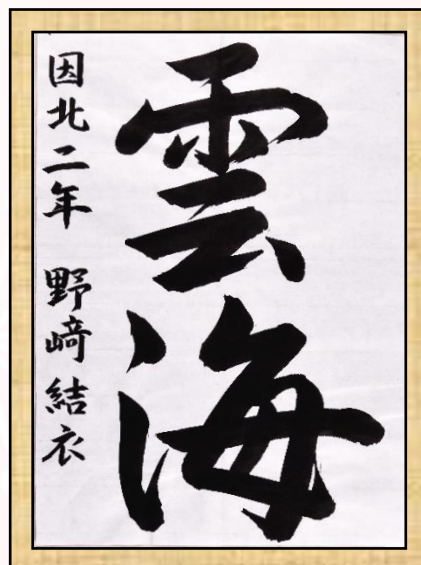 雲海
因北二年 野﨑結衣